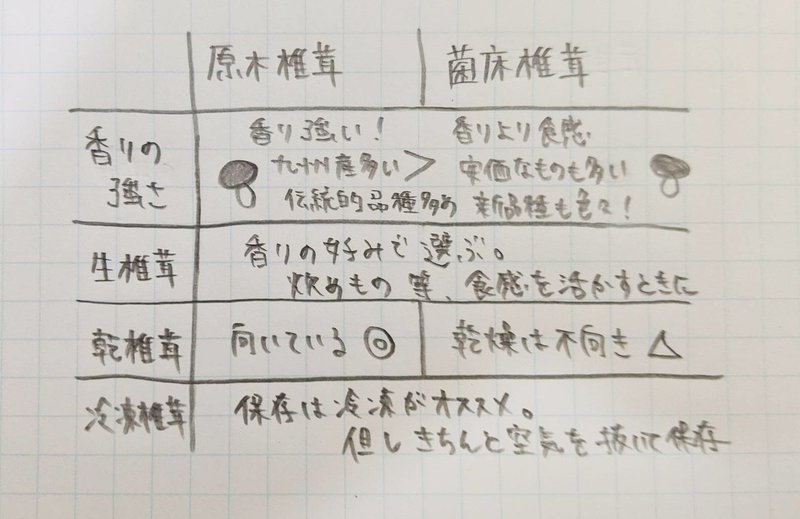 原木椎茸 菌床椎茸
香りの強さ
香り強い！
九州産多い >
伝統的品種多め
香りより食感
安価なものも多い
新品種も色々！
生椎茸
香りの好みで選ぶ。
炒めもの等、食感を活かすときに
乾椎茸 向いている ◎ 乾燥は不向き △
冷凍椎茸
保存は冷凍がオススメ。
但しきちんと空気を抜いて保存